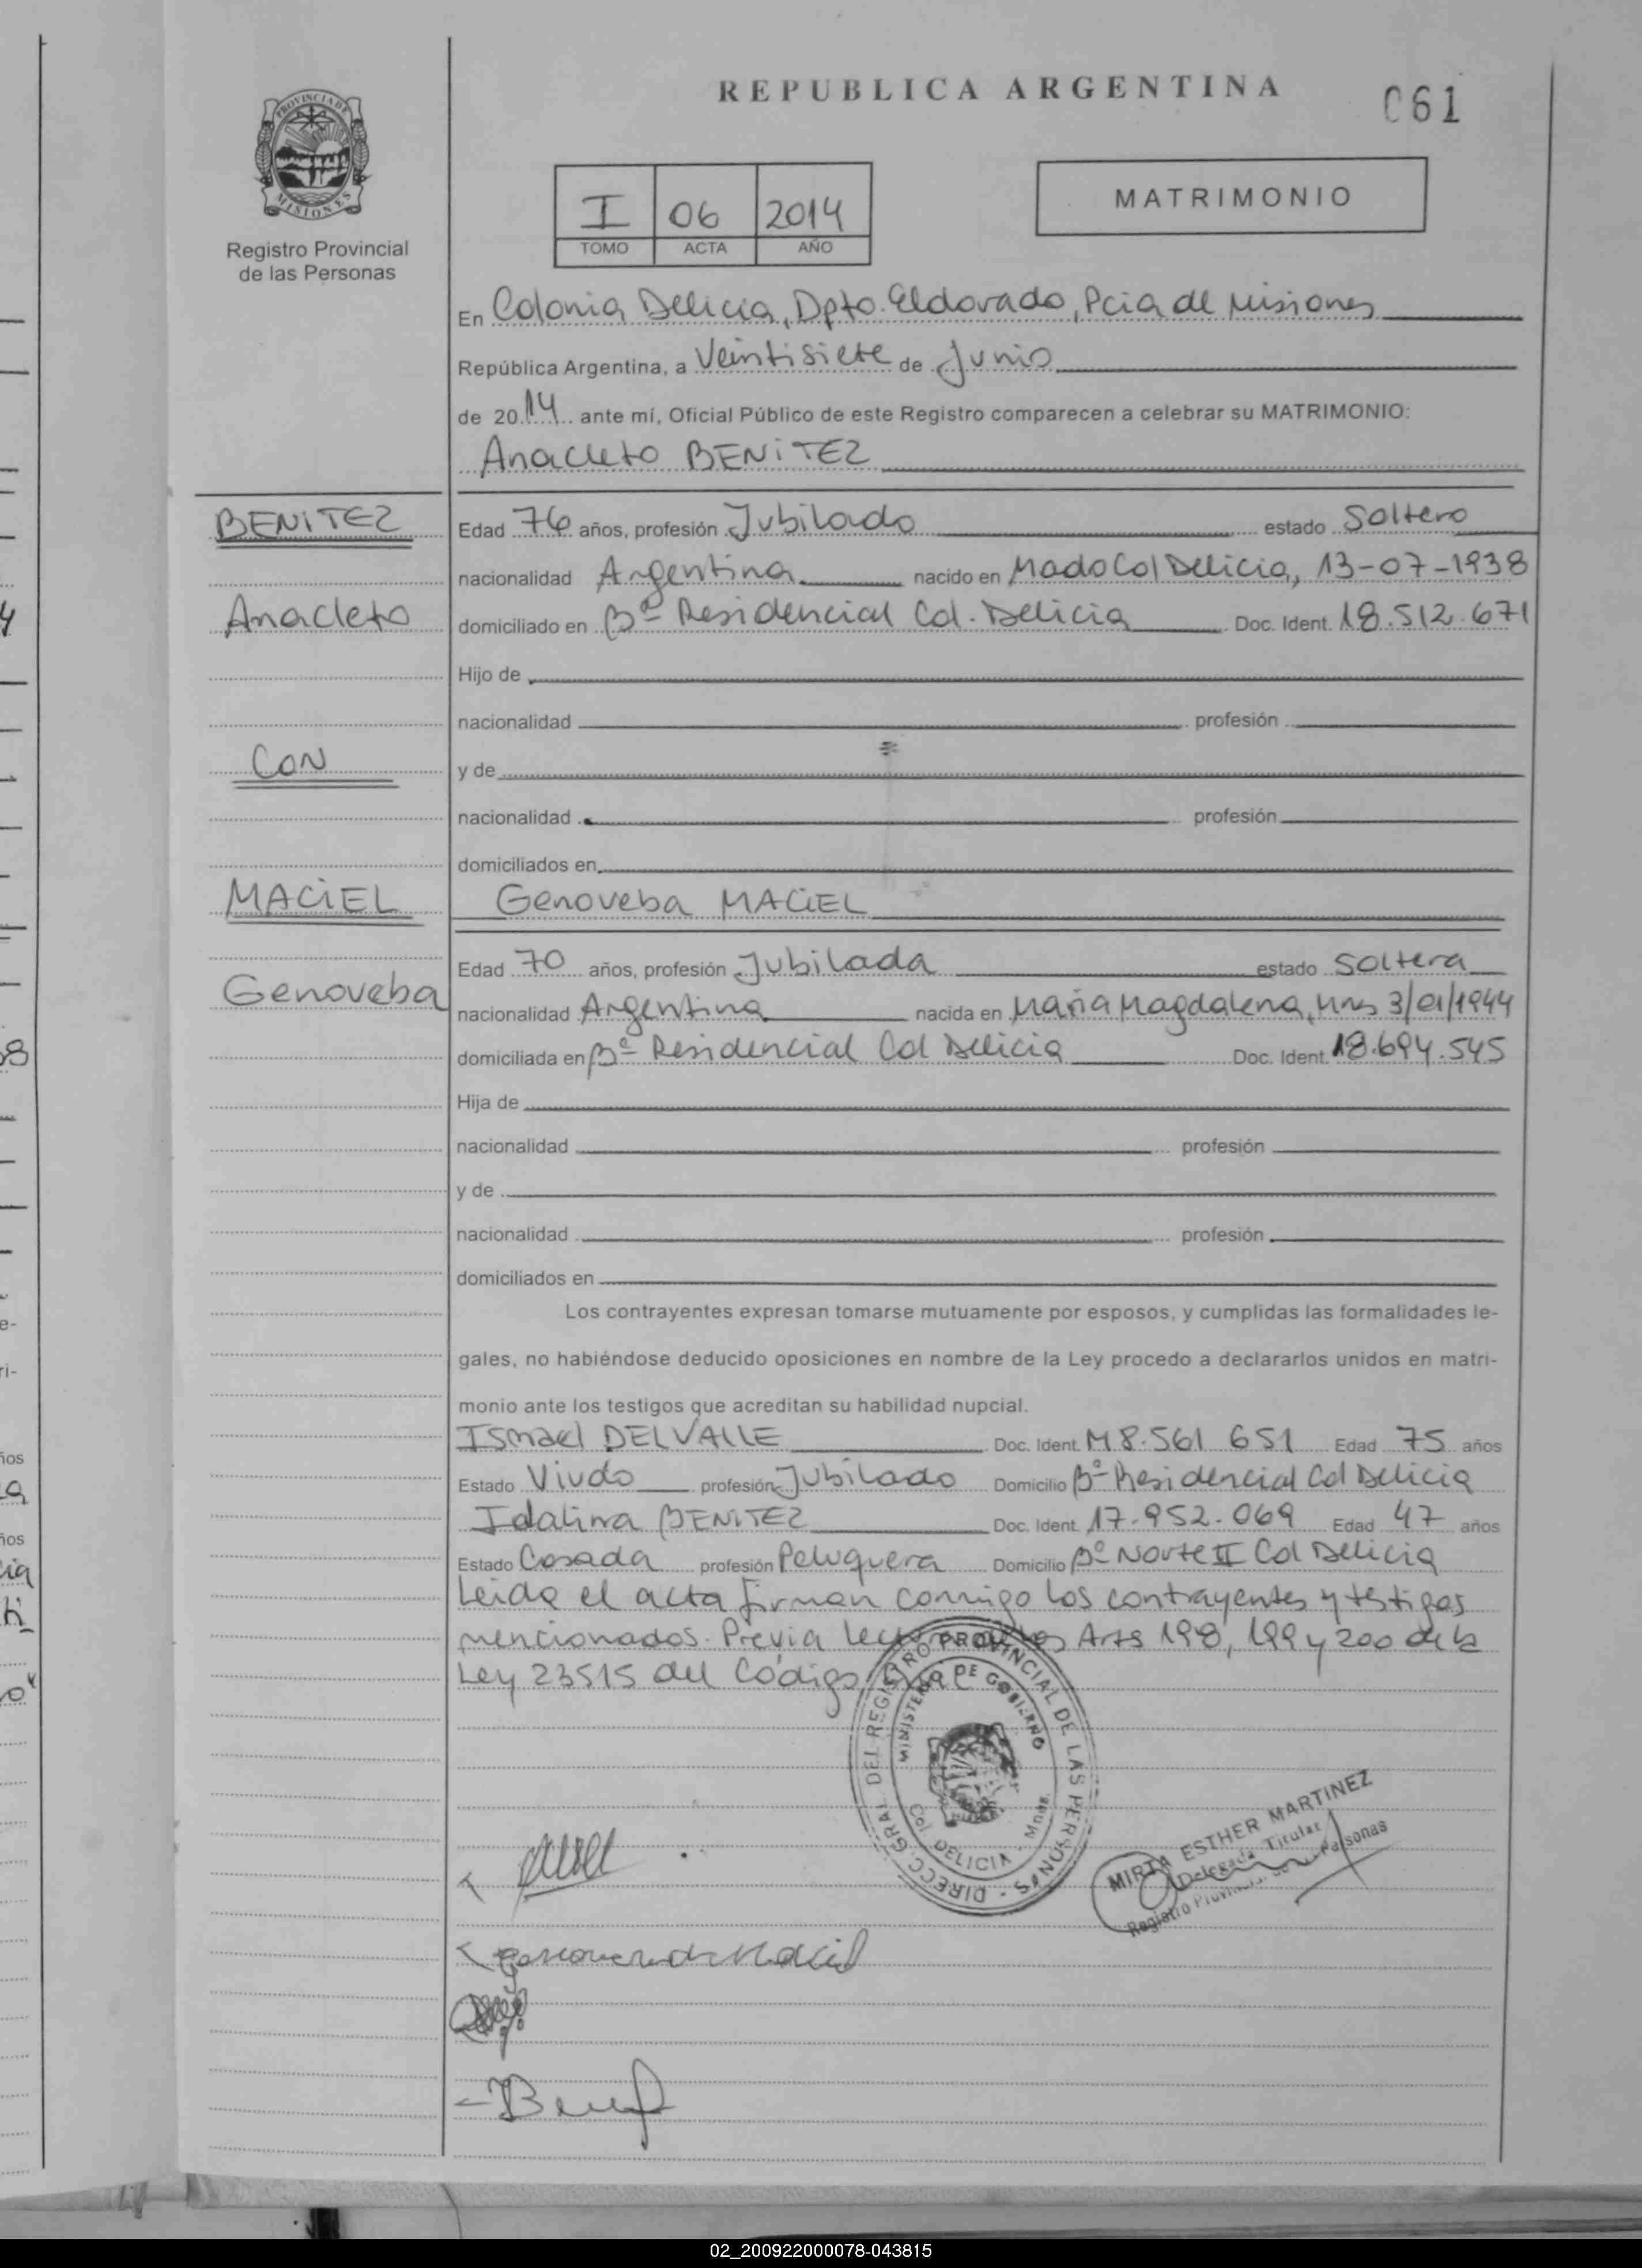 REPUBLICA ARGENTINA
061
PROVINCIA DE
MISIONES
Registro Provincial
de las Personas
I 06 2014
TOMO ACTA AÑO
MATRIMONIO
En Colonia Delicia, Dpto. Eldorado, Pcia de Misiones
República Argentina, a Veintisiete de Junio
de 2014 ante mí, Oficial Público de este Registro comparecen a celebrar su MATRIMONIO:
Anacleto BENITEZ
BENITEZ
Edad 76 años, profesión Jubilado estado Soltero
nacionalidad Argentina nacido en Mado Col Delicia, 13-07-1938
Anacleto
domiciliado en Bº Residencial Col. Delicia Doc. Ident. 18.512.671
Hijo de
nacionalidad profesión
CON
y de
nacionalidad profesión
domiciliados en
MACIEL
Genoveba MACIEL
Edad 70 años, profesión Jubilada estado Soltera
Genoveba
nacionalidad Argentina nacida en Maria Magdalena, Mns 3/01/1944
domiciliada en Bº Residencial Col Delicia Doc. Ident. 18.694.545
Hija de
nacionalidad profesión
y de
nacionalidad profesión
domiciliados en
Los contrayentes expresan tomarse mutuamente por esposos, y cumplidas las formalidades le-
gales, no habiéndose deducido oposiciones en nombre de la Ley procedo a declararlos unidos en matri-
monio ante los testigos que acreditan su habilidad nupcial.
Ismael DELVALLE Doc. Ident. M8.561 651 Edad 75 años
Estado Viudo profesión Jubilado Domicilio Bº Residencial Col Delicia
Idalina BENITEZ Doc. Ident. 17.952.069 Edad 47 años
Estado Casada profesión Peluquera Domicilio Bº Norte II Col Delicia
Leida el acta firman conmigo los contrayentes y testigos
mencionados. Previa lectura de los Arts 198, 199 y 200 de la
Ley 23515 del Código Civil
DIRECC. GRAL. DEL REGISTRO PROVINCIAL DE LAS PERSONAS
MINISTERIO DE GOBIERNO
Col DELICIA - Mnes.
MIRTA ESTHER MARTINEZ
Delegada Titular
Registro Provincial de las Personas
02_200922000078-043815